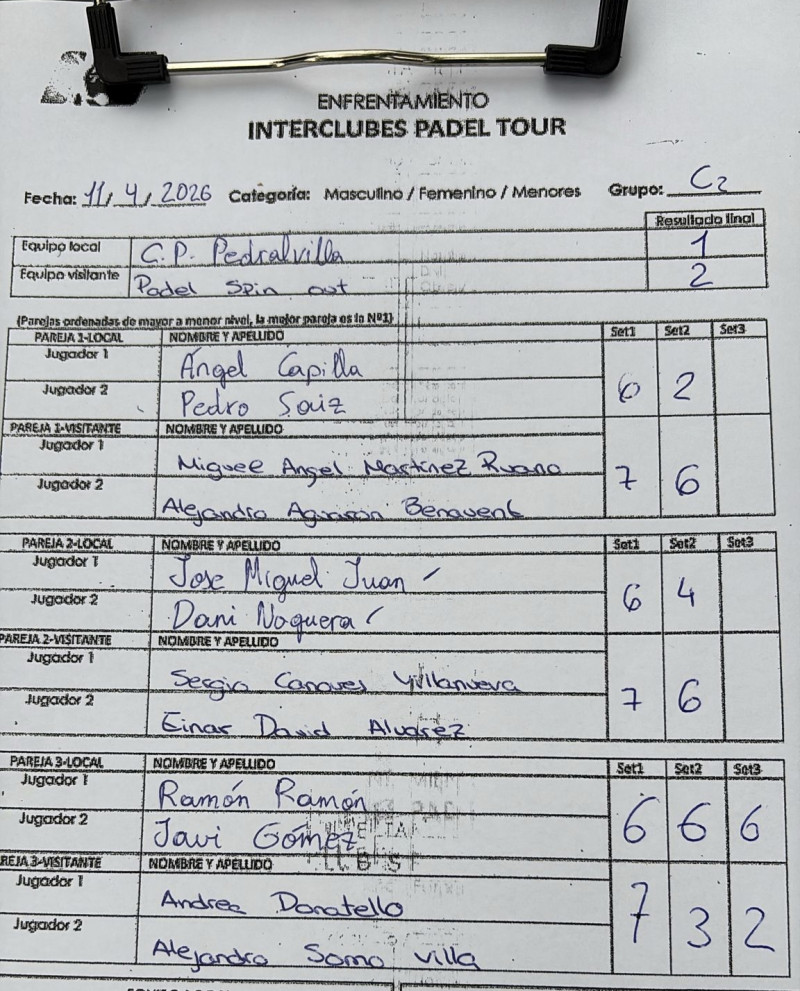 ENFRENTAMIENTO
INTERCLUBES PADEL TOUR
Fecha: 11/4/2026 Categoría: Masculino / Femenino / Menores Grupo: C2
Resultado final
Equipo local C.P. Pedralvilla 1
Equipo visitante Padel Spin out 2
(Parejas ordenadas de mayor a menor nivel, la mejor pareja es la Nº1)
PAREJA 1-LOCAL NOMBRE Y APELLIDO Set1 Set2 Set3
Jugador 1 Ángel Capilla
Jugador 2 Pedro Saiz
6 2
PAREJA 1-VISITANTE NOMBRE Y APELLIDO
Jugador 1 Miguel Angel Martinez Ruano
Jugador 2 Alejandro Aguaron Benavent
7 6
PAREJA 2-LOCAL NOMBRE Y APELLIDO Set1 Set2 Set3
Jugador 1 Jose Miguel Juan
Jugador 2 Dani Noguera
6 4
PAREJA 2-VISITANTE NOMBRE Y APELLIDO
Jugador 1 Sergio Canoves Villanueva
Jugador 2 Einar David Alvarez
7 6
PAREJA 3-LOCAL NOMBRE Y APELLIDO Set1 Set2 Set3
Jugador 1 Ramón Ramón
Jugador 2 Javi Gómez
6 6 6
REJA 3-VISITANTE NOMBRE Y APELLIDO
Jugador 1 Andrea Donatello
Jugador 2 Alejandro Somo villa
7 3 2